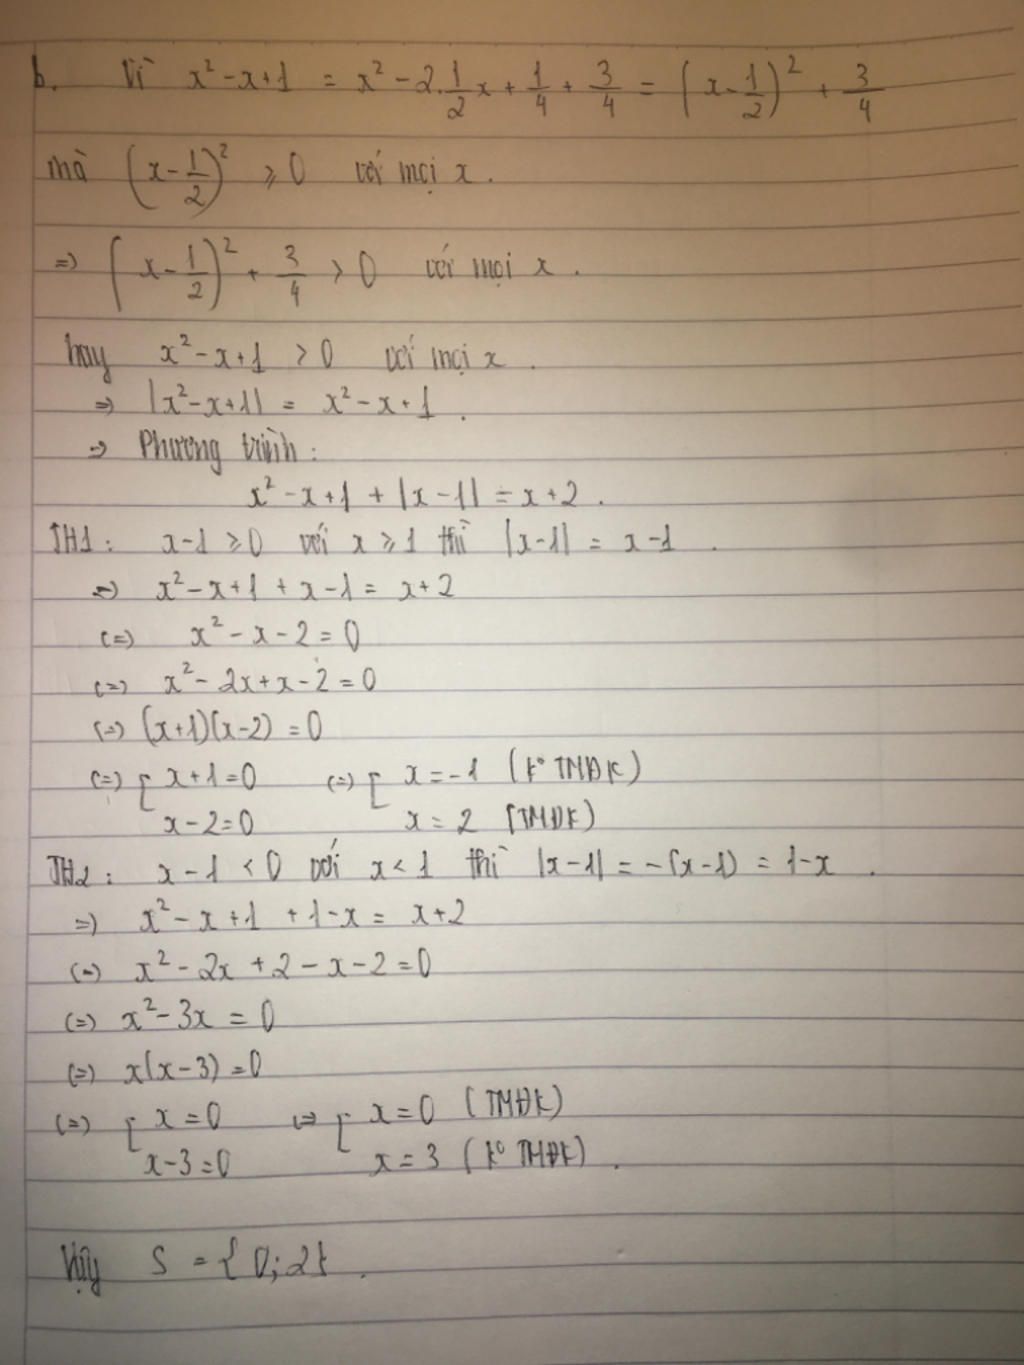 b. Vì x² - x + 1 = x² - 2.1/2x + 1/4 + 3/4 = (x - 1/2)² + 3/4
mà (x - 1/2)² ⩾ 0 với mọi x.
=> (x - 1/2)² + 3/4 > 0 với mọi x.
hay x² - x + 1 > 0 với mọi x.
=> |x² - x + 1| = x² - x + 1.
=> Phương trình:
x² - x + 1 + |x - 1| = x + 2.
TH1: x - 1 ⩾ 0 với x ⩾ 1 thì |x - 1| = x - 1.
=> x² - x + 1 + x - 1 = x + 2
(=) x² - x - 2 = 0
(=) x² - 2x + x - 2 = 0
(=) (x + 1)(x - 2) = 0
(=) [ x + 1 = 0 (=) [ x = -1 (k° TMĐK)
x - 2 = 0 x = 2 (TMĐK)
TH2: x - 1 < 0 với x < 1 thì |x - 1| = -(x - 1) = 1 - x.
=) x² - x + 1 + 1 - x = x + 2
(=) x² - 2x + 2 - x - 2 = 0
(=) x² - 3x = 0
(=) x(x - 3) = 0
(=) [ x = 0 (=) [ x = 0 (TMĐK)
x - 3 = 0 x = 3 (k° TMĐK).
Vậy S = {0; 2}.